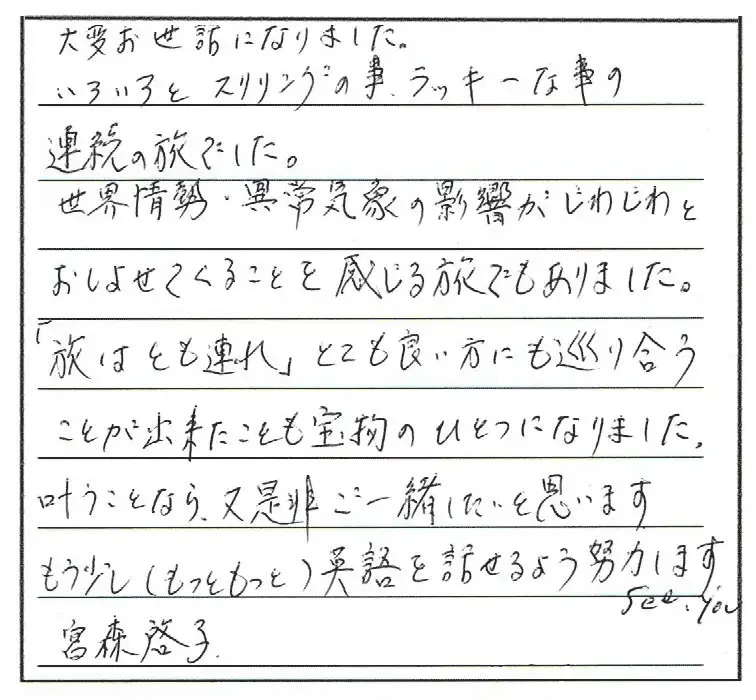 大変お世話になりました。
いろいろとスリリングの事、ラッキーな事の
連続の旅でした。
世界情勢・異常気象の影響がじわじわと
おしよせてくることを感じる旅でもありました。
「旅はとも連れ」とても良い方にも巡り合う
ことが出来たことも宝物のひとつになりました。
叶うことなら、又是非ご一緒したいと思います
もう少し(もっともっと)英語を話せるよう努力します
See. you
宮森啓子.